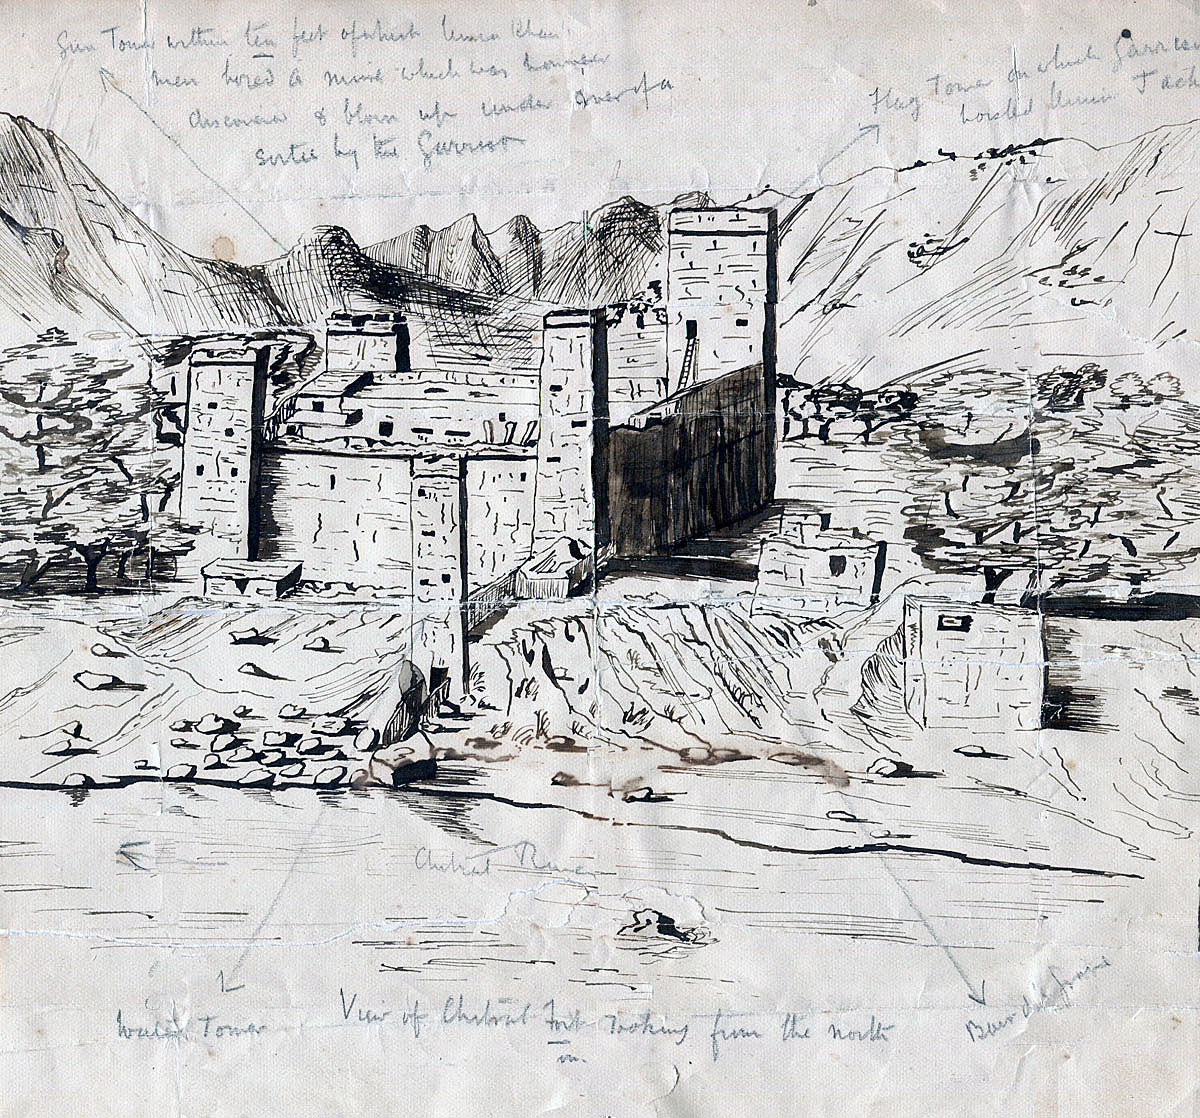 Gun Tower within ten feet of which Umra Khan's
men bored a mine which was however
discovered & blown up under cover of a
sortie by the Garrison
Flag Tower on which Garrison
hoisted Union Jack
Chitral River
Water Tower
View of Chitral Fort looking from the north
in.
grave